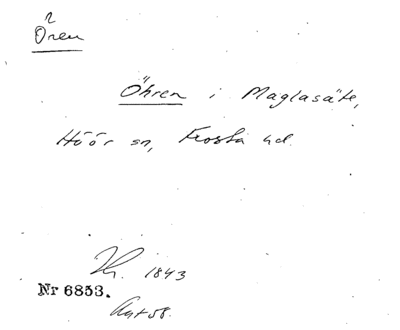 Ören
Öhren i Maglasäte,
Höör sn, Frosta hd.
1843
Nr 6853.